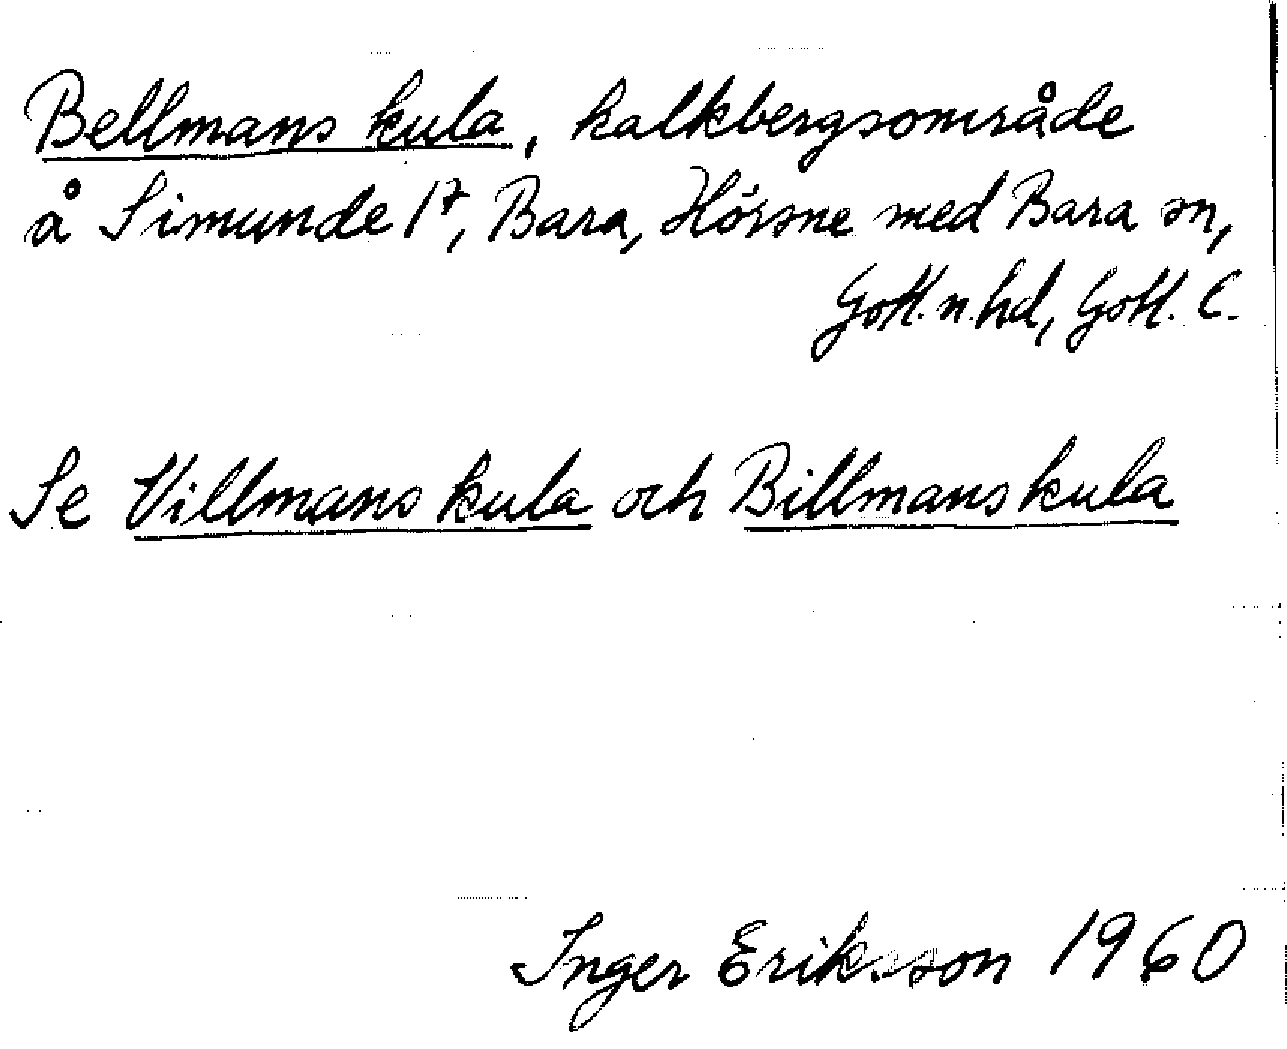 Bellmans kula, kalkbergsområde
å Simunde 1⁷, Bara, Hörsne med Bara sn,
Gotl. n. hd, Gotl. C.
Se Villmans kula och Billmans kula
Inger Eriksson 1960